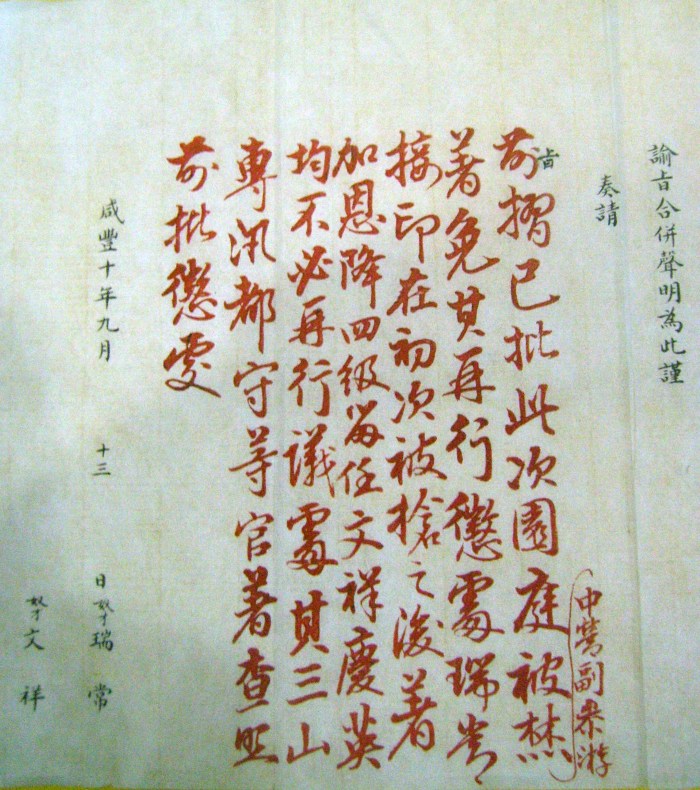 諭旨合併聲明為此謹
奏請
旨
中營副叅游
前摺已批此次園庭被焚
著免其再行懲處瑞常
接印在初次被搶之後著
加恩降四級留任文祥慶英
均不必再行議處其三山
專汛都守等官著查照
前批懲處
咸豐十年九月十三日奴才瑞常
奴才文祥